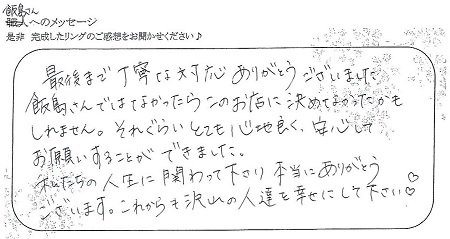 飯島さん
職人へのメッセージ
是非 完成したリングのご感想をお聞かせください♪
最後まで丁寧な対応ありがとうございました
飯島さんではなかったらこのお店に決めてなかったかも
しれません。それぐらいとても心地良く、安心して
お願いすることができました。
私たちの人生に関わって下さり本当にありがとう
ございます。これからも沢山の人達を幸せにして下さい♡